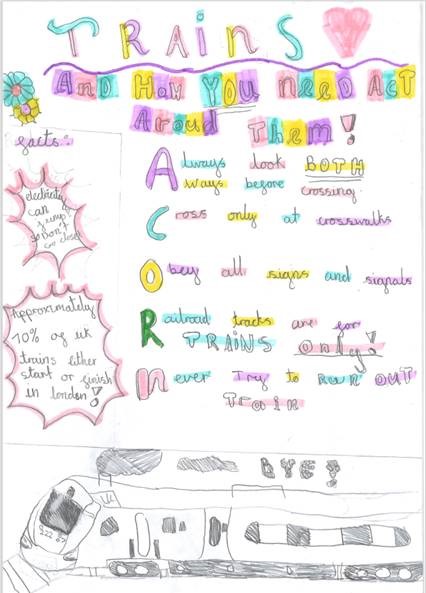 TRAINS
AND HOW YOU NEED ACT
AROUD THEM!
facts:
electricity
can
jump!
so Don't
Go close
Approximately
70% of uk
trains either
start or finish
in london!
Always look BOTH
ways before crossing
Cross only at crosswalks
Obey all signs and signals
Railroad tracks are for
TRAINS only!
Never Try to Run OUT
Train
BYE!